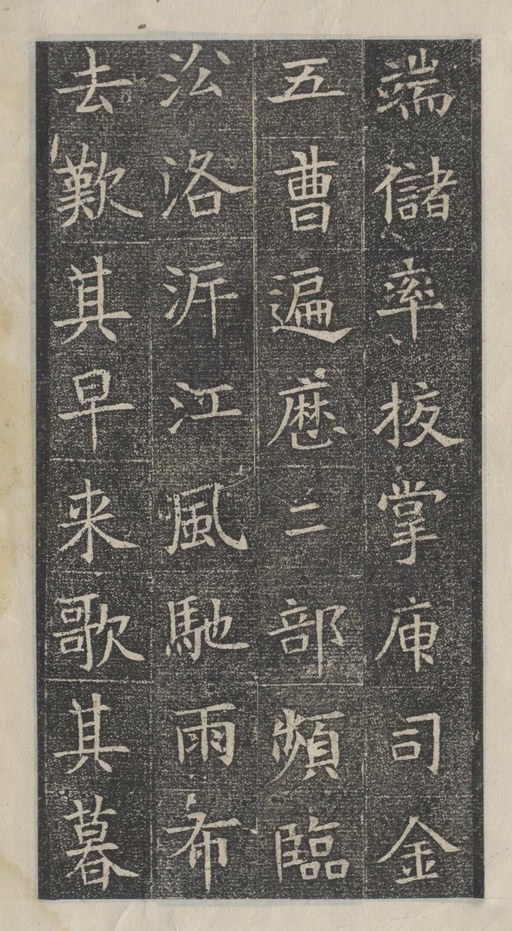 端儲率捗掌庾司金
五曹遍歷二部頻臨
㳂洛泝江風馳雨布
去歎其早来歌其暮